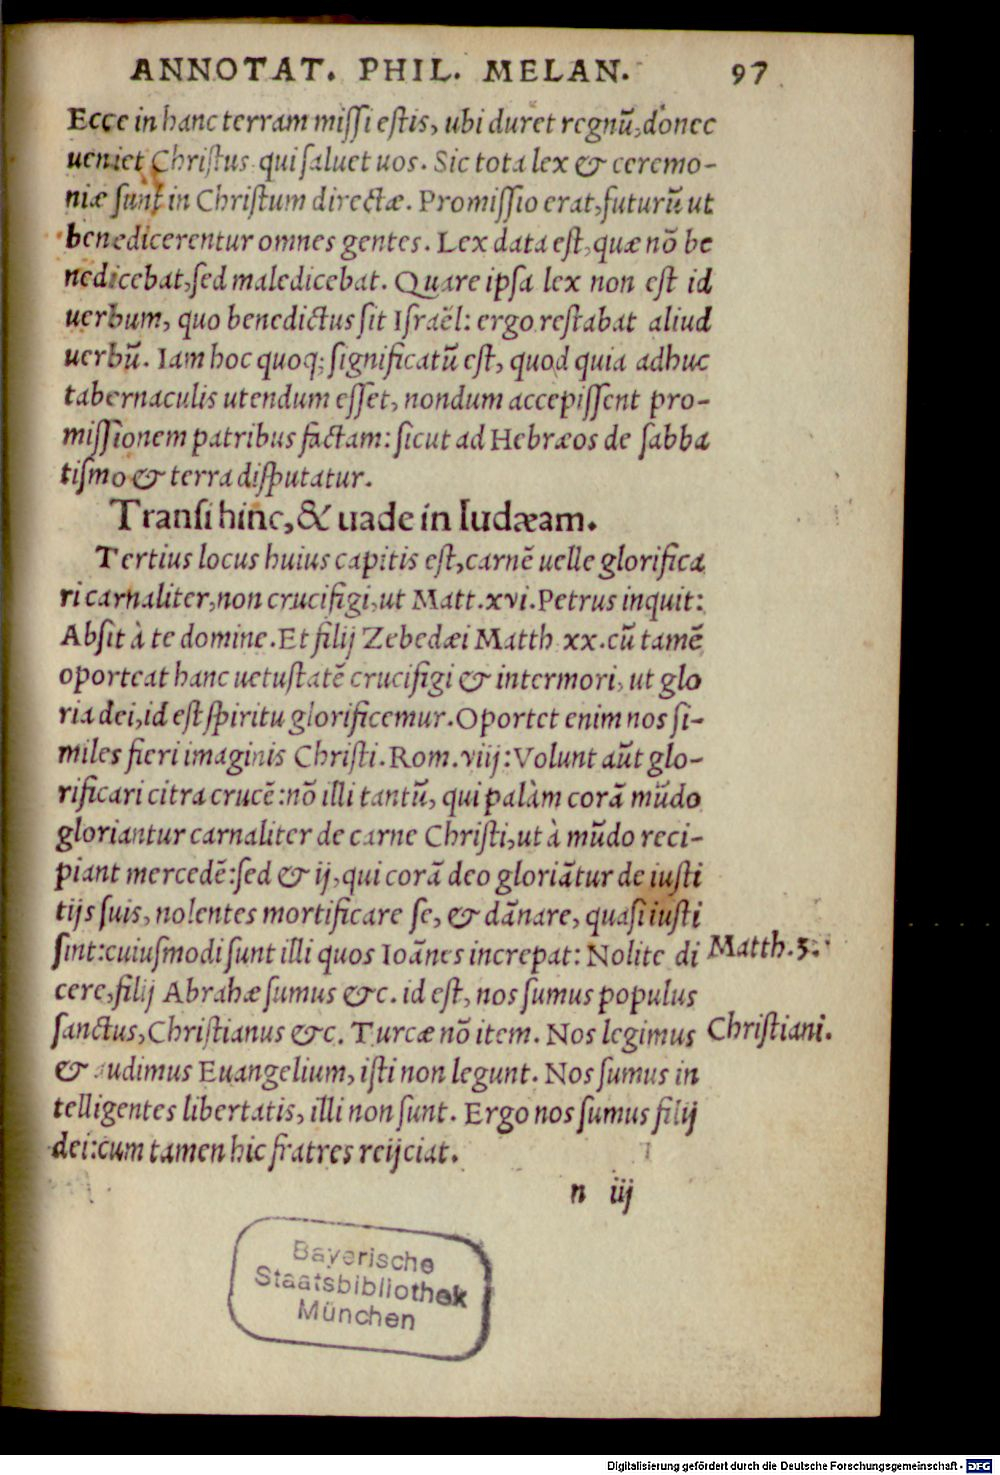 ANNOTAT. PHIL. MELAN. 97
Ecce in hanc terram missi estis, ubi duret regnū, donec
ueniet Christus qui saluet uos. Sic tota lex & ceremo-
niæ sunt in Christum directæ. Promissio erat, futurū ut
benedicerentur omnes gentes. Lex data est, quæ nō be
nedicebat, sed maledicebat. Quare ipsa lex non est id
uerbum, quo benedictus sit Israël: ergo restabat aliud
uerbū. Iam hoc quoq; significatū est, quod quia adhuc
tabernaculis utendum esset, nondum accepissent pro-
missionem patribus factam: sicut ad Hebræos de sabba
tismo & terra disputatur.
Transi hinc, & uade in Iudæam.
Tertius locus huius capitis est, carnē uelle glorifica
ri carnaliter, non crucifigi, ut Matt. xvi. Petrus inquit:
Absit à te domine. Et filij Zebedæi Matth. xx. cū tamē
oporteat hanc uetustatē crucifigi & intermori, ut glo
ria dei, id est spiritu glorificemur. Oportet enim nos si-
miles fieri imaginis Christi. Rom. viij: Volunt aūt glo-
rificari citra crucē: nō illi tantū, qui palàm corā mūdo
gloriantur carnaliter de carne Christi, ut à mūdo reci-
piant mercedē: sed & ij, qui corā deo gloriātur de iusti
tijs suis, nolentes mortificare se, & dānare, quasi iusti
sint: cuiusmodi sunt illi quos Ioānes increpat: Nolite di Matth. 3.
cere, filij Abrahæ sumus &c. id est, nos sumus populus
sanctus, Christianus &c. Turcæ nō item. Nos legimus Christiani.
& audimus Euangelium, isti non legunt. Nos sumus in
telligentes libertatis, illi non sunt. Ergo nos sumus filij
dei: cum tamen hic fratres reijciat.
n iij
Bayerische
Staatsbibliothek
München
Digitalisierung gefördert durch die Deutsche Forschungsgemeinschaft - DFG